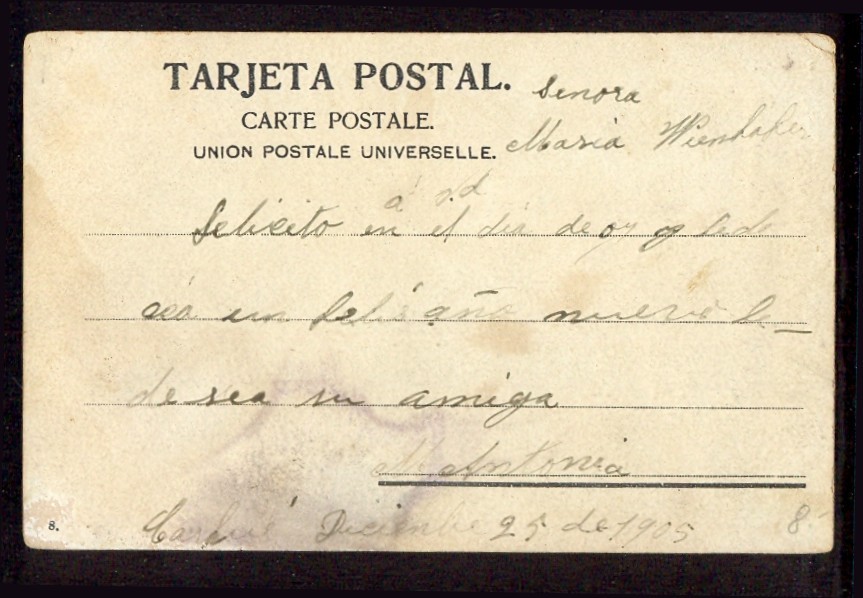 TARJETA POSTAL.
CARTE POSTALE.
UNION POSTALE UNIVERSELLE.
Senora
Maria
a
felicito en el dia de oy
un feliz año nuevo le
desea su amiga
Antonia
8.
Diciembe 25 de 1905
8